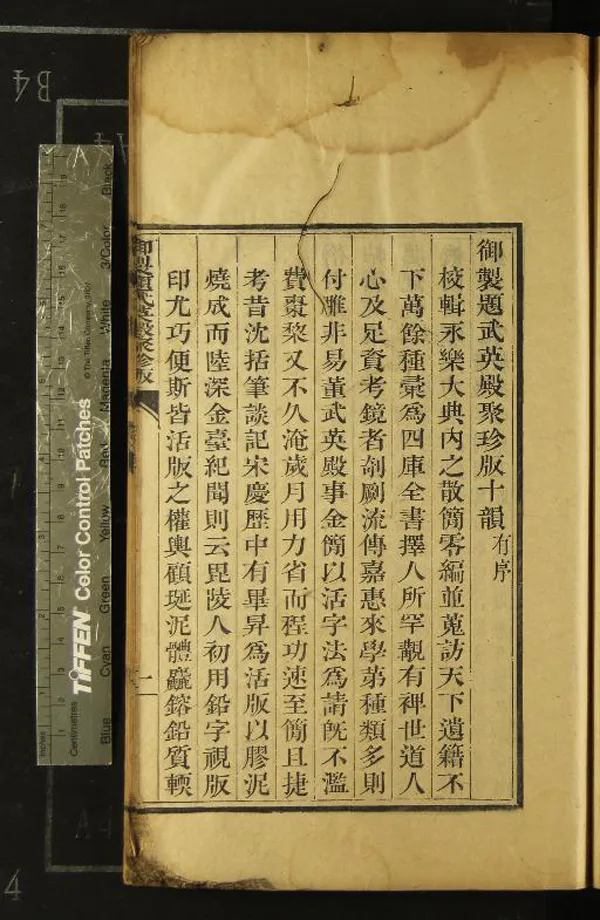 御製題武英殿聚珍版十韻有序
校輯永樂大典內之散簡零編並蒐訪天下遺籍不
下萬餘種彚爲四庫全書擇人所罕覯有裨世道人
心及足資考鏡者剞劂流傳嘉惠來學苐種類多則
付雕非易董武英殿事金簡以活字法爲請旣不濫
費棗棃又不久淹歲月用力省而程功速至簡且捷
考昔沈括筆談記宋慶歷中有畢昇爲活版以膠泥
燒成而陸深金臺紀聞則云毘陵人初用鉛字視版
印尤巧便斯皆活版之權輿顧埏泥體麤鎔鉛質輭
御製題武英殿聚珍版
一
B4
4
Inches
Centimetres
TIFFEN Color Control Patches
© The Tiffen Company, 2007
Blue
Cyan
Green
Yellow
Red
Magenta
White
3/Color
Black